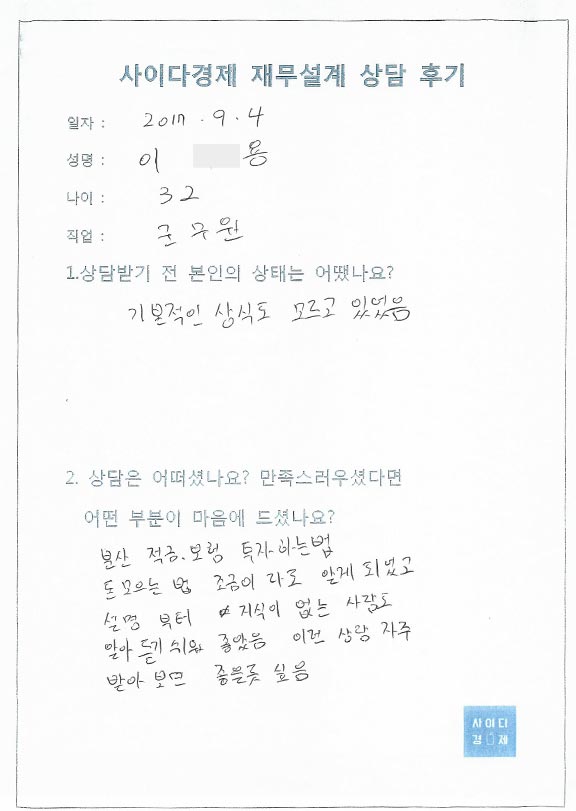 사이다경제 재무설계 상담 후기
일자 : 2017 . 9 . 4
성명 : 이 용
나이 : 32
직업 : 군무원
1.상담받기 전 본인의 상태는 어땠나요?
기본적인 상식도 모르고 있었음
2. 상담은 어떠셨나요? 만족스러우셨다면
어떤 부분이 마음에 드셨나요?
분산 적금.보험 투자하는법
돈모으는 법 조금이 라도 알게 되었고
설명 부터 지식이 없는 사람도
알아 듣기 쉬워 좋았음 이런 상담 자주
받아 보면 좋을듯 싶음
사이다
경제